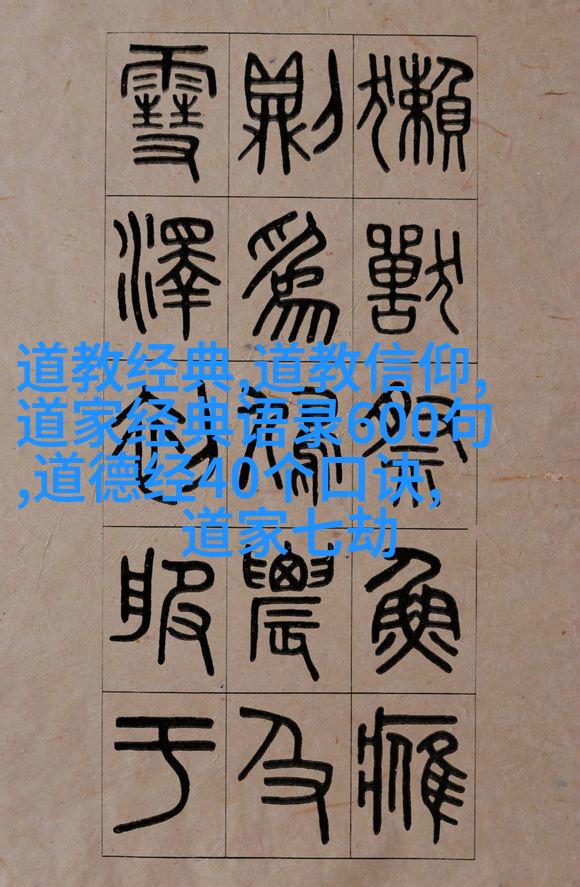 獺獸祭魚鷹
則為鳩農及
雪澤初服于
道教经典,道教信仰,
道家经典语录600句
,道德经40个口诀,
道家七劫